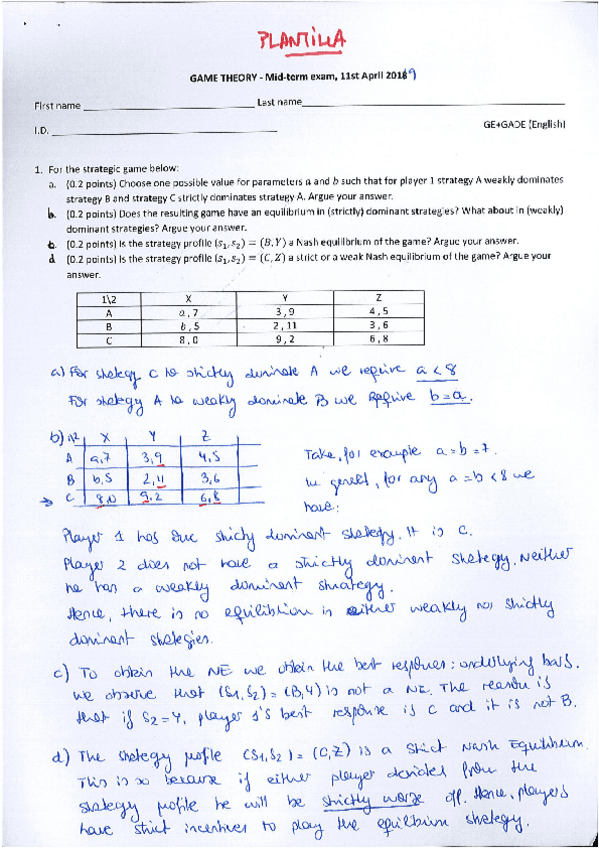 PLANTILLA
GAME THEORY - Mid-term exam, 11st April 2019
First name Last name
I.D. GE+GADE (English)
1. For the strategic game below:
a. (0.2 points) Choose one possible value for parameters a and b such that for player 1 strategy A weakly dominates
strategy B and strategy C strictly dominates strategy A. Argue your answer.
b. (0.2 points) Does the resulting game have an equilibrium in (strictly) dominant strategies? What about in (weakly)
dominant strategies? Argue your answer.
c. (0.2 points) Is the strategy profile (s1, s2) = (B, Y) a Nash equilibrium of the game? Argue your answer.
d (0.2 points) Is the strategy profile (s1, s2) = (C, Z) a strict or a weak Nash equilibrium of the game? Argue your
answer.
1\2 X Y Z
A a, 7 3, 9 4, 5
B b, 5 2, 11 3, 6
C 8, 0 9, 2 6, 8
a) For strategy C to strictly dominate A we require a < 8
For strategy A to weakly dominate B we require b=a.
b) 1\2 X Y Z
A a,7 3,9 4,5
B b,5 2,11 3,6
C 8,0 9,2 6,8
Take, for example a=b=7.
In general, for any a=b<8 we
have:
Player 1 has one strictly dominant strategy. It is C.
Player 2 does not have a strictly dominant strategy. Neither
he has a weakly dominant strategy.
Hence, there is no equilibrium in either weakly nor strictly
dominant strategies.
c) To obtain the NE we obtain the best responses: underlying bars.
We observe that (S1,S2) = (B,Y) is not a NE. The reason is
that if S2=Y, player 1's best response is C and it is not B.
d) The strategy profile (S1,S2) = (C,Z) is a Strict Nash Equilibrium.
This is so because if either player deviates from the
strategy profile he will be strictly worse off. Hence, players
have strict incentives to play the equilibrium strategy.